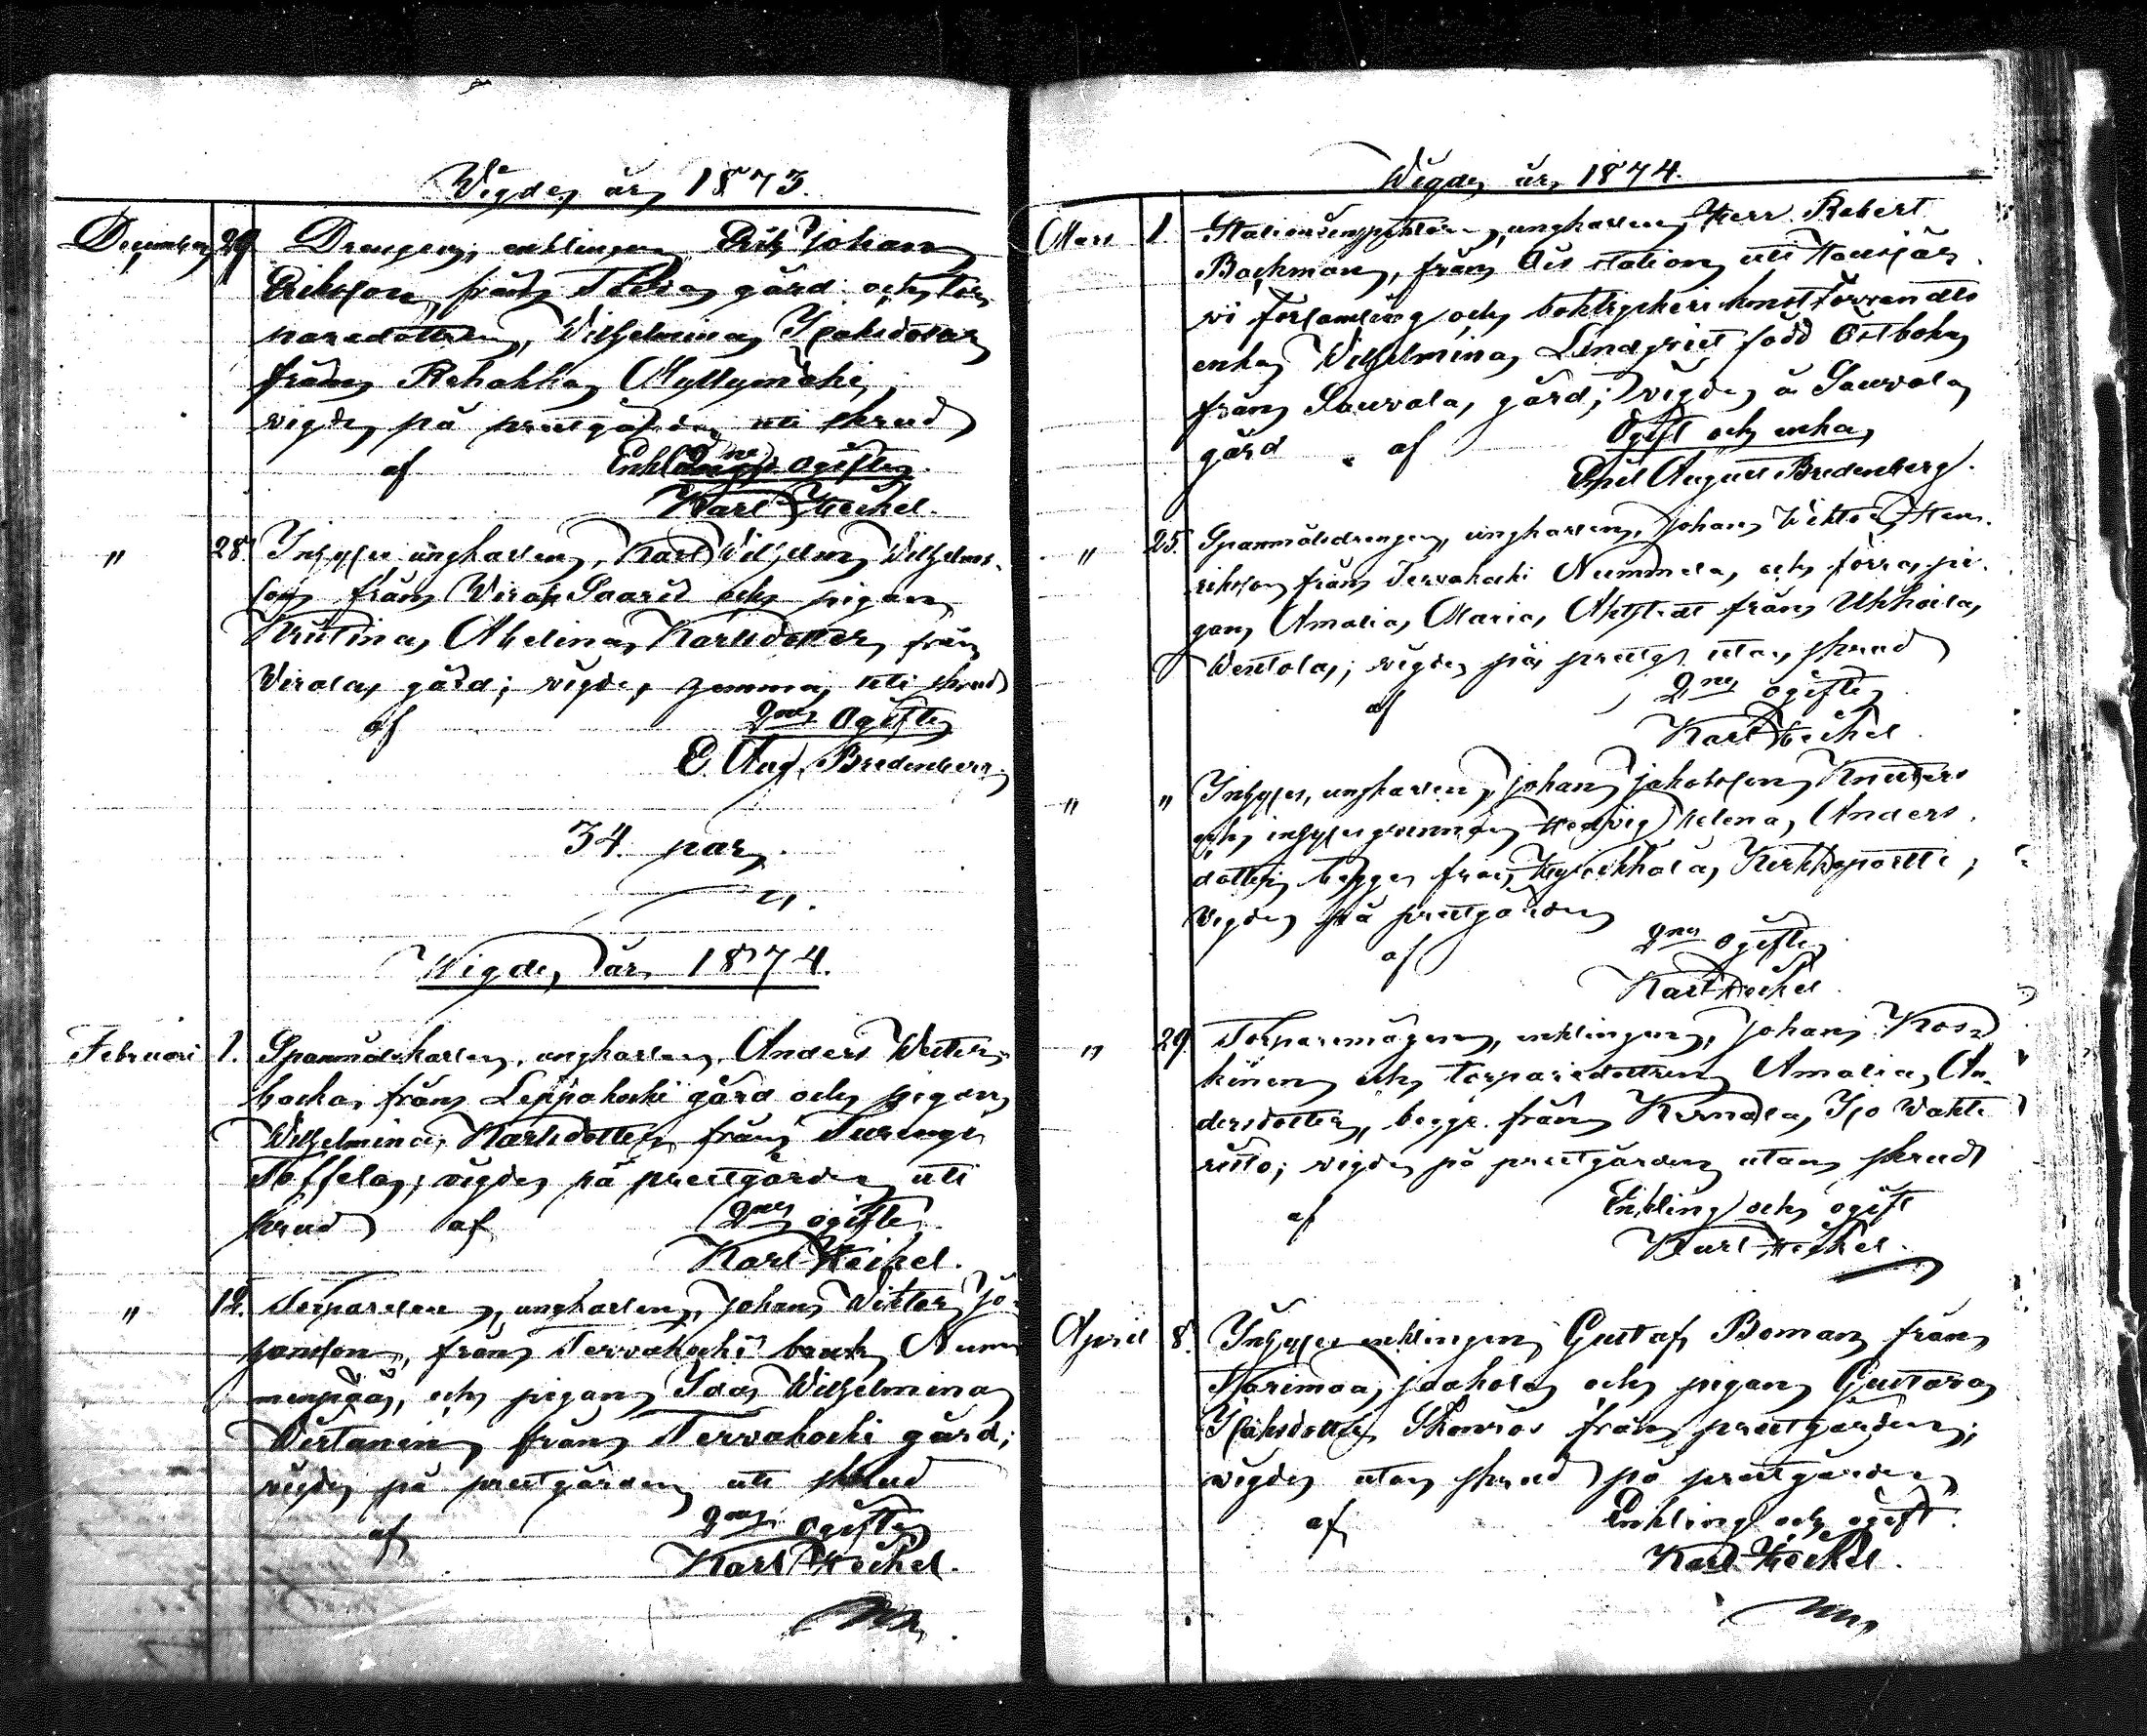 Wigde år 1873.
December 26 Drengen, enklingen Erik Johan
Eriksson från gård och tor,
paredottren, Wilhelmina Isaksdotter
från Rehakka Myllymäki,
vigde på prestgården uti skrud
af Enkl. ogifte
Karl Heikel.
" 28. Inhyses ungkarlen, Karl Wilhelm Wilhelms-
son från Wirala Saaris och pigan
Kristina Abelina Karlsdotter, från
Wirala gård; vigde hemma uti skrud
af 2ne ogifte
E. Aug. Bredenberg
34. par.
Wigde år 1874.
Februari 1. Spanmålskarlen, ungkarlen Anders Wester-
backa från Leppäkoski gård och pigan
Wilhelmina Karlsdotter från Turenge
Toffela; vigde på prestgården uti
skrud af 2ne ogifte
Karl Heikel.
" 12. Torparesonen, ungkarlen, Johan Wiktor Jo-
hansson, från Tervakoski bruk Num
menpää, och pigan Ida Wilhelmina
Wirtanen från Tervakoski gård;
vigde på prestgården uti skrud
af 2ne ogifte
Karl Heikel.
Wigde år 1874.
Mars 1. Stationsinspektoren, ungkarlen, Herr Robert
Backman, från Ois station uti Hausjär
vi församling och boktryckerikonstförvandts
enkan Wilhelmina Lindqvist född Östbohm
från Sauvala gård; vigde å Sauvala
gård af Ogift och enka
Emil August Bredenberg.
" 25. Spanmålsdrengen, ungkarlen, Johan Wiktor Hen-
riksson från Tervakoski Nummela, och förra pi-
gan Amalia Maria Ahlstedt från Uhkoila
Wentola; vigde på prestg. utan skrud
af 2ne ogifte
Karl Heikel.
" " Inhyses, ungkarlen, Johan Jakobsson Knuters
och inhysesqvinnan Hedvig Helena Anders-
dotter, begge från Kirkkoportti;
vigde på prestgården
af 2ne ogifte
Karl Heikel.
" 29. Torparemågen, enklingen, Johan Kos-
kinen och torparedottren Amalia An-
dersdotter, begge från Kernala, Iso Wahte
risto; vigde på prestgården utan skrud
af Enkling och ogift
Karl Heikel.
April 8. Inhyses enklingen Gustaf Boman från
Harimaa Jaakola och pigan Gustava
Isaksdotter från prestgården;
vigde utan skrud på prestgården
af Enkling och ogift.
Karl Heikel.